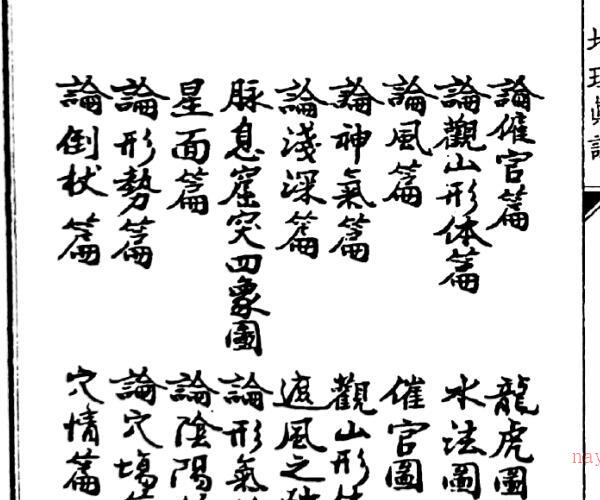 地理真訣
論催官篇
論觀山形体篇
論風篇
論神氣篇
論淺深篇
脉息窟突四象圖
星面篇
論形勢篇
論倒杖篇
龍虎圖
水法圖
催官圖
觀山形体
遮風之
論形氣
論陰陽
論穴塲
穴情篇
nay